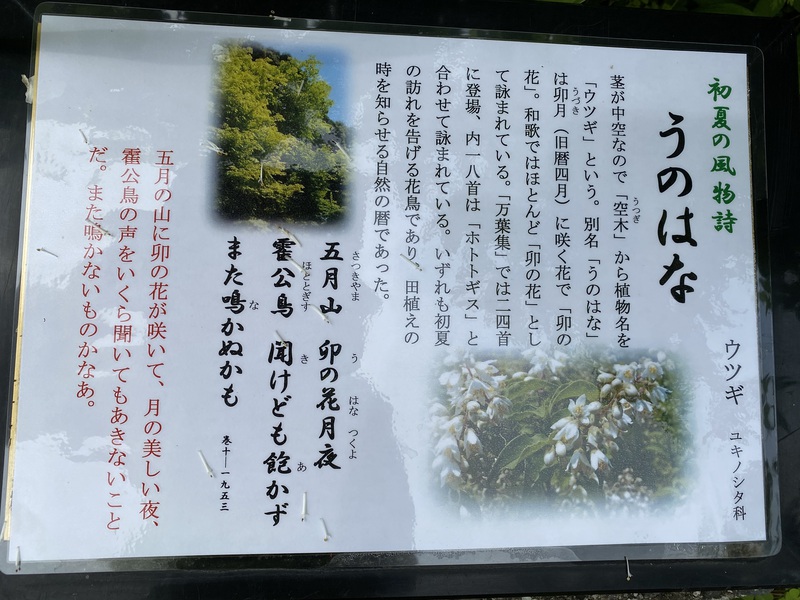 初夏の風物詩
うのはな
ウツギ ユキノシタ科
茎が中空なので「空木」から植物名を
うつぎ
「ウツギ」という。別名「うのはな」
は卯月（旧暦四月）に咲く花で「卯の
うづき
花」。和歌ではほとんど「卯の花」とし
て詠まれている。「万葉集」では二四首
に登場、内一八首は「ホトトギス」と
合わせて詠まれている。いずれも初夏
の訪れを告げる花鳥であり、田植えの
時を知らせる自然の暦であった。
五月山 卯の花月夜
さつきやま う はな つくよ
霍公鳥 聞けども飽かず
ほととぎす き あ
また鳴かぬかも
な
巻十―一九五三
五月の山に卯の花が咲いて、月の美しい夜、
霍公鳥の声をいくら聞いてもあきないこと
だ。また鳴かないものかなあ。